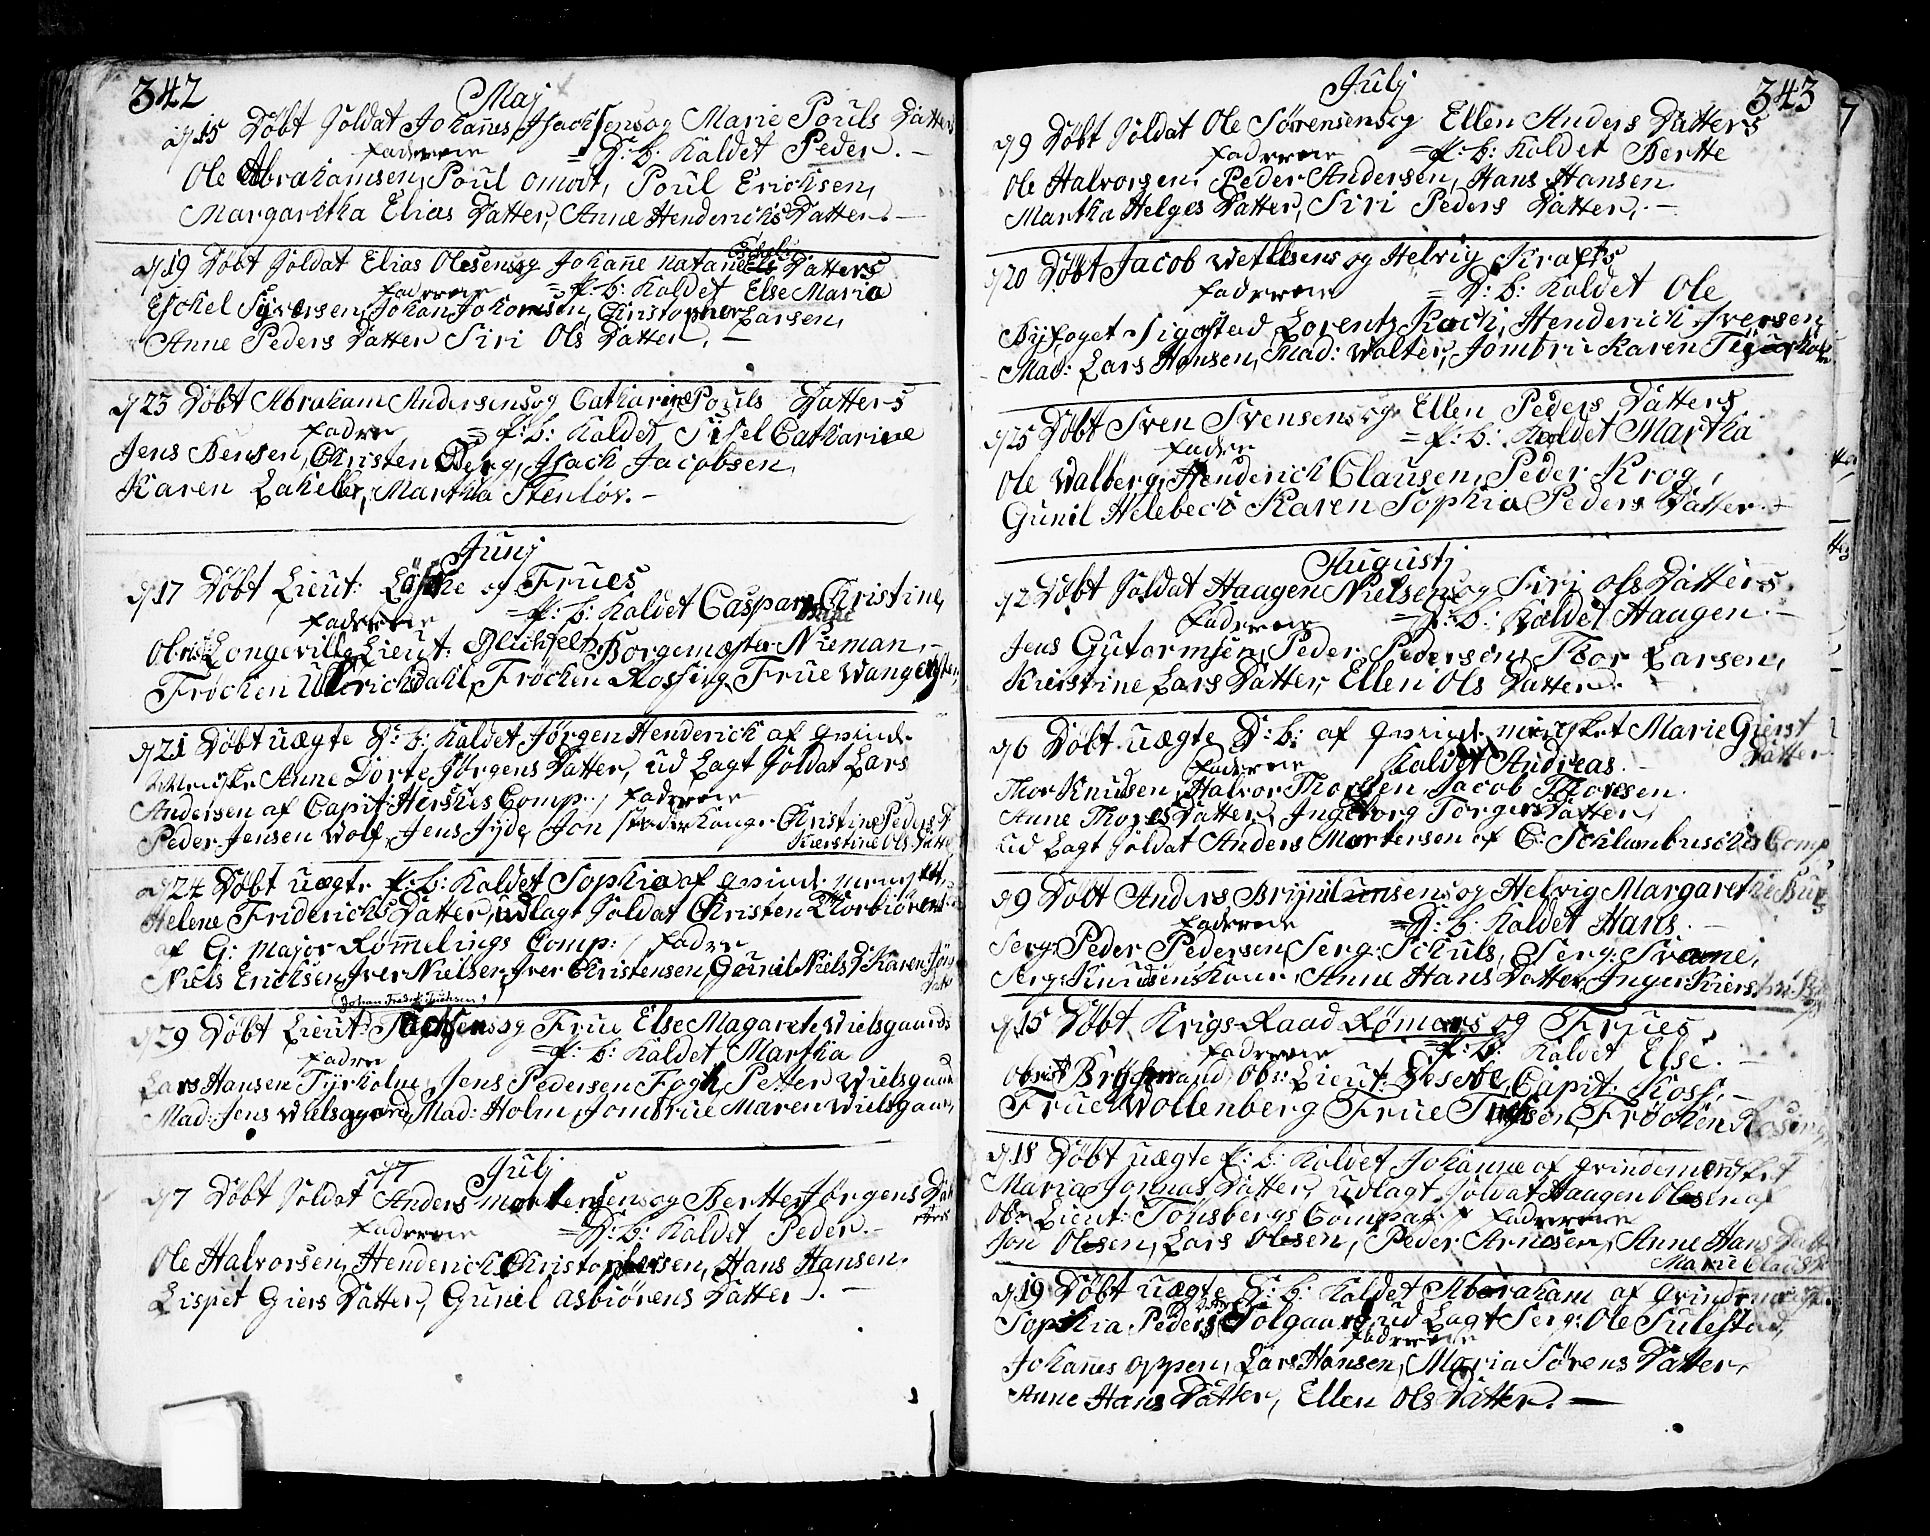 342
Maj
d 15 Døbt Soldat Johannes Jsachsens og Marie Pouls Datters
fadderne = D: b: Kaldet Peder. –
Ole Abrahamsen, Poul omodt, Poul Erichsen,
Margaretha Elias Datter, Anne Henderichs Datter. –
d 19 Døbt Soldat Elias Olesens og Johanne natanaels Datters
fadderne = P: b: Kaldet Else Maria
Eschel Syversen, Johan Johansen, Christopher Larsen,
Anne Peders Datter Siri Ols Datter. –
d 23 Døbt Abraham Andersens og Catharine Pouls Datters
fadre = P: b: Kaldet Sisel Catharine
Jens Bensen, Christen Berg, Jsach Jacobsen,
Karen Lakeler, Martha Stenløv. –
Junj
d 17 Døbt Lieut: og Frues
fadderne = P: b: Kaldet Caspara Christine
Longeville, Lieut: Borgemester Nieman, –
Frøchen Ulrichdahl, Frøchen Rossing, Frue Wangensten
d 21 Døbt uægte D: b: Kaldet Jørgen Henderich af qvinde
Mensket Anne Dorte Jørgens Datter, ud Lagt Soldat Lars
Andersen af Capit: Comp: / fadderne
Peder Jensen Wolf, Jens Jyde, Jon Christine Peders D
Kierstine Ols Datter
d 24 Døbt uægte P: b: Kaldet Sophia af qvinde mensket
Helene Friderichs Datter, udlagt Soldat Christen Thorbiørens
af G: Major Rømmelings Comp: / fadre
Niels Erichsen, Jver Nielsen, Jver Christensen, Gunil Niels D: Karen Jøns
Datter
d 29 Døbt Lieut: og Frue Else Magarete Wielsgaards
fadre = P: b: Kaldet Martha
Lars Hansen Tyrholm, Jens Pedersen Fogh, Petter Wielsgaard
Mad: Jens Wielsgaard, Mad: Holm, Jomfrue Maren Wielsgaard,
Julj
d 7 Døbt Soldat Anders Mortensens og Berthe Jørgens Dat
ters
fadderne = D: b: Kaldet Peder. –
Ole Halvorsen, Henderich Christophersen, Hans Hansen.
Lispet Giers Datter, Gunil Asbiørens Datter. –
Julj
343
d 9 Døbt Soldat Ole Sørensens og Ellen Anders Datters
fadderne = P: b: Kaldet Berthe
Ole Halvorsen, Peder Andersen, Hans Hansen
Martha Helges Datter, Siri Peders Datter. –
d 20 Døbt Jacob Wetlesens og Helvig Krafts
fadderne = D: b: Kaldet Ole
Byfoget Sigostad Lorentz Koch, Henderich Jversen
Mad: Lars Hansen, Mad: Walter, Jomfru Karen Tyrholm
d 25 Døbt Sven Svensens og Ellen Peders Datters
fadre = P: b: Kaldet Martha
Ole Walberg, Henderich Clausen, Peder Krog,
Gunil Helebech Karen Sophia Peders Datter. –
Augustj
d 2 Døbt Soldat Haagen Nielsens og Siri Ols Datters
fadderne = D: b: Kaldet Haagen. –
Jens Gutormsen, Peder Pedersen, Thor Larsen,
Kierstine Lars Datter, Ellen Ols Datter. –
d 6 Døbt uægte D: b: af qvinde mensket Marie Gierts
Datter
fadderne Kaldet Andreas. –
Thor Knudsen, Halvor Thorsen, Jacob Thorsen.
Anne Thores Datter, Ingeborg Torgers Datter,
ud Lagt Soldat Anders Mortensen af C: Schlambuschs Comp.
d 9 Døbt Anders Brynildsens og Helvig Margarethe
fadderne = D: b: Kaldet Hans. –
Serg: Peder Pedersen, Serg: Schuls, Serg: Svane,
Serg: Knudsens Kone, Anne Hans Datter, Inger Kierstine
d 15 Døbt Krigs Raad Rømers og Frues
fadderne = P: b: Kaldet Else. –
Obrist Brüchmand, Obr: Lieut: Capit: Koss, –
Frue Wollenberg Frue Frøchen Rosing
d 18 Døbt uægte P: b: Kaldet Johanne af qvindemensket
Maria Jonnas Datter, udlagt Soldat Haagen Olesen af
Obr: Lieut: Tønsbergs Comp: / fadderne
Jon Olesen, Lars Olesen, Peder Arnesen, Anne Hans Datter
Marie
d 19 Døbt uægte D: b: Kaldet Abraham af qvindemensket
Sophia Peders Datter Solgaard, ud Lagt Serg: Ole Sulestad
fadderne
Johannes Oppen, Lars Hansen, Maria Sørens Datter,
Anne Hans Datter, Ellen Ols Datter. –